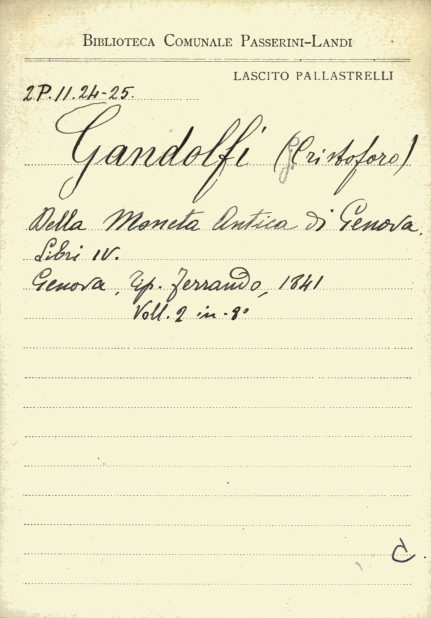 BIBLIOTECA COMUNALE PASSERINI-LANDI
LASCITO PALLASTRELLI
2P.11.24-25.
Gandolfi (Cristoforo)
Della Moneta Antica di Genova.
Libri IV.
Genova, Tip. Ferrando, 1841
Voll. 2 in-8°
C.